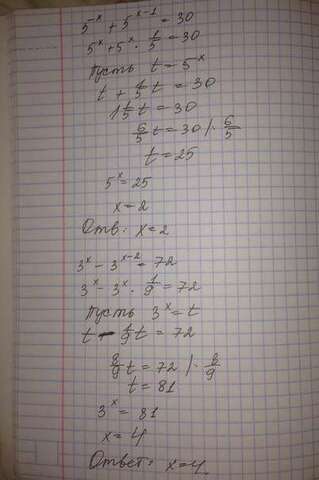 5^x + 5^{x-1} = 30
5^x + 5^x · 1/5 = 30
Пусть t = 5^x
t + 1/5 t = 30
1 1/5 t = 30
6/5 t = 30 |· 6/5
t = 25
5^x = 25
x = 2
Отв: x = 2
3^x - 3^{x-2} = 72
3^x - 3^x · 1/9 = 72
Пусть 3^x = t
t - 1/9 t = 72
8/9 t = 72 |· 8/9
t = 81
3^x = 81
x = 4
Ответ: x = 4